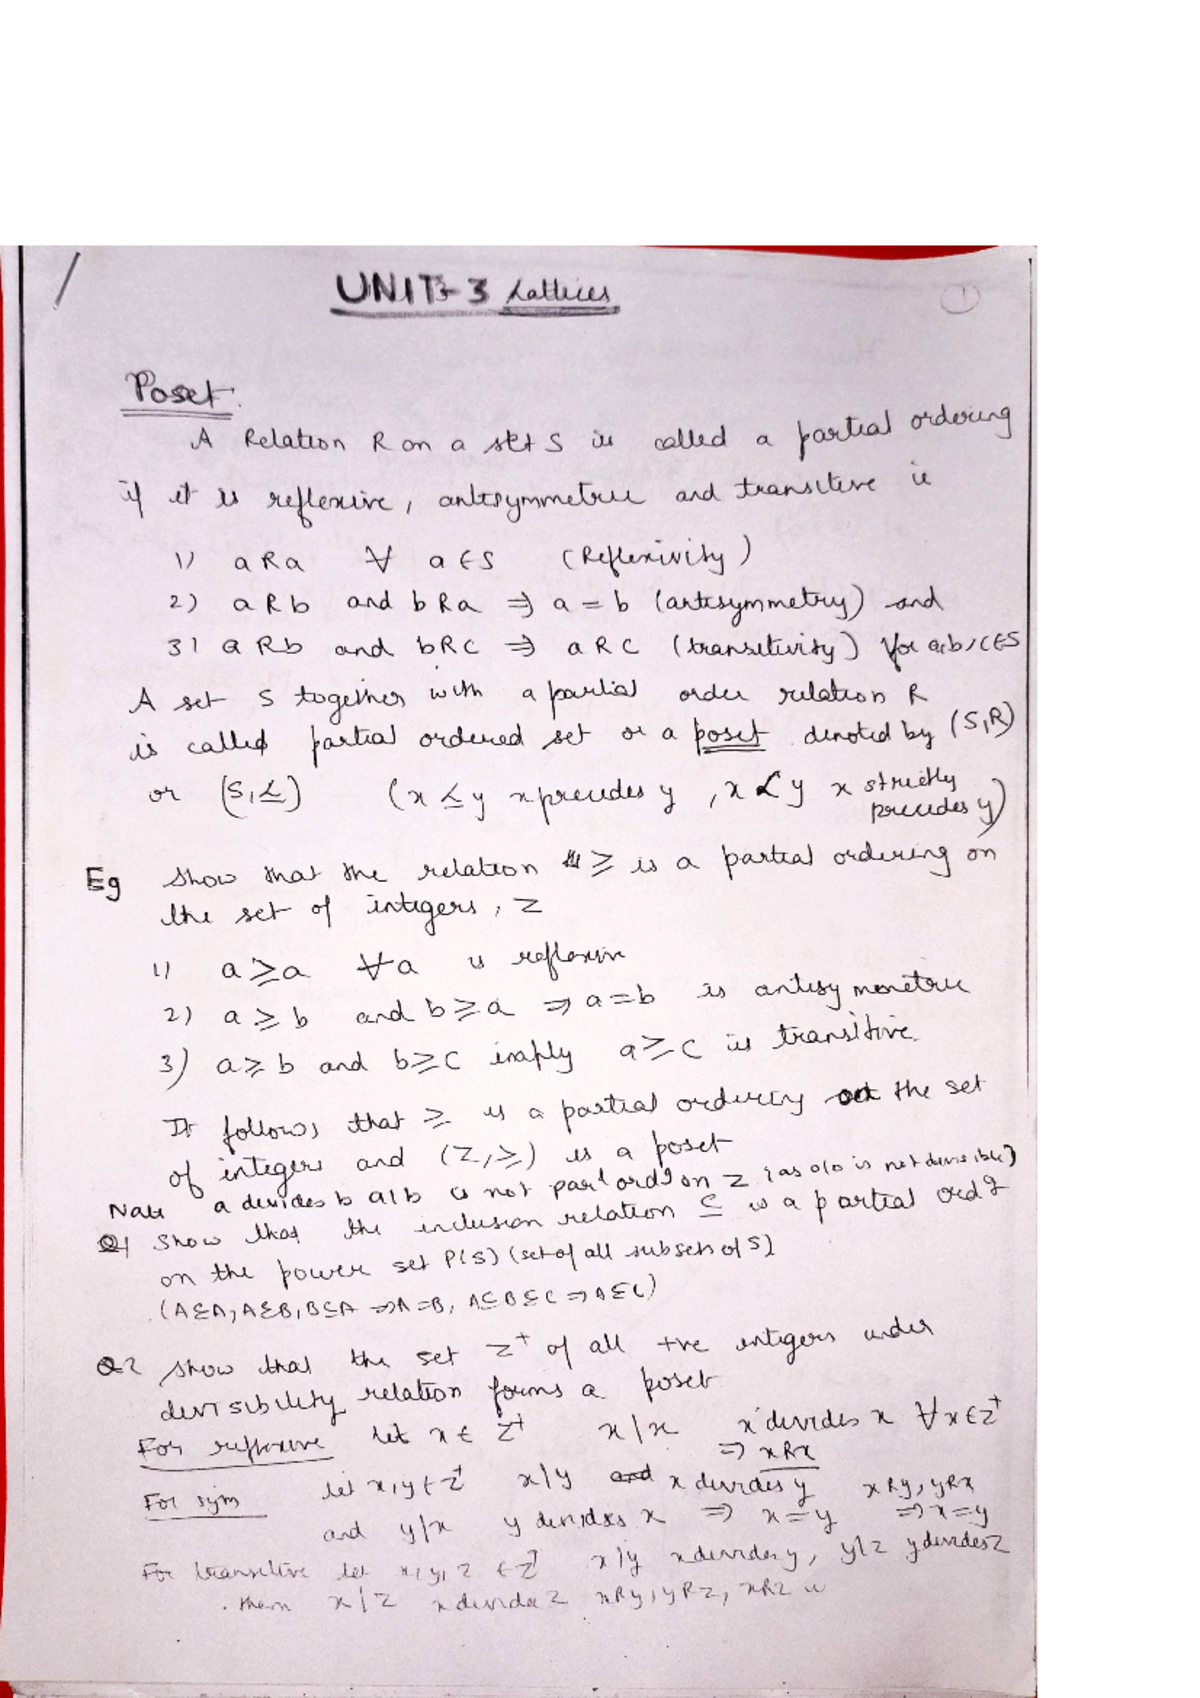 UNIT-3 Lattices
1
Poset.
A Relation R on a set S is called a partial ordering
if it is reflexive, antisymmetric and transitive ie
1) aRa ∀ a∈S (Reflexivity)
2) aRb and bRa ⇒ a = b (antisymmetry) and
3) aRb and bRC ⇒ aRC (transitivity) for a,b,c∈S
A set S together with a partial order relation R
is called partial ordered set or a poset denoted by (S,R)
or (S,≤) (x ≤ y x precedes y , x < y x strictly
precedes y)
Eg Show that the relation ≥ is a partial ordering on
the set of integers, Z
1) a≥a ∀a is reflexive
2) a ≥ b and b≥a ⇒ a=b is antisymmetric
3) a≥b and b≥c imply a≥c is transitive.
It follows that ≥ is a partial ordering the set
of integers and (Z,≥) is a poset
Note a divides b a|b is not on Z (as 0|0 is not divisible)
Q1 Show that the inclusion relation ⊆ is a partial ordg
on the power set P(S) (set of all subsets of S)
(A⊆A, A⊆B, B⊆A ⇒A=B, A⊆B⊆C ⇒A⊆C)
Q2 Show that the set Z⁺ of all +ve integers under
divisibility relation forms a poset
For reflexive let x∈ Z⁺ x|x x divides x ∀x∈Z⁺
⇒ xRx
For sym let x,y∈Z⁺ x|y and x divides y xRy, yRx
and y|x y divides x ⇒ x=y ⇒x=y
For transitive let x,y,z ∈Z⁺ x|y x divides y, y|z y divides z
then x|z x divides z xRy, yRz, xRz